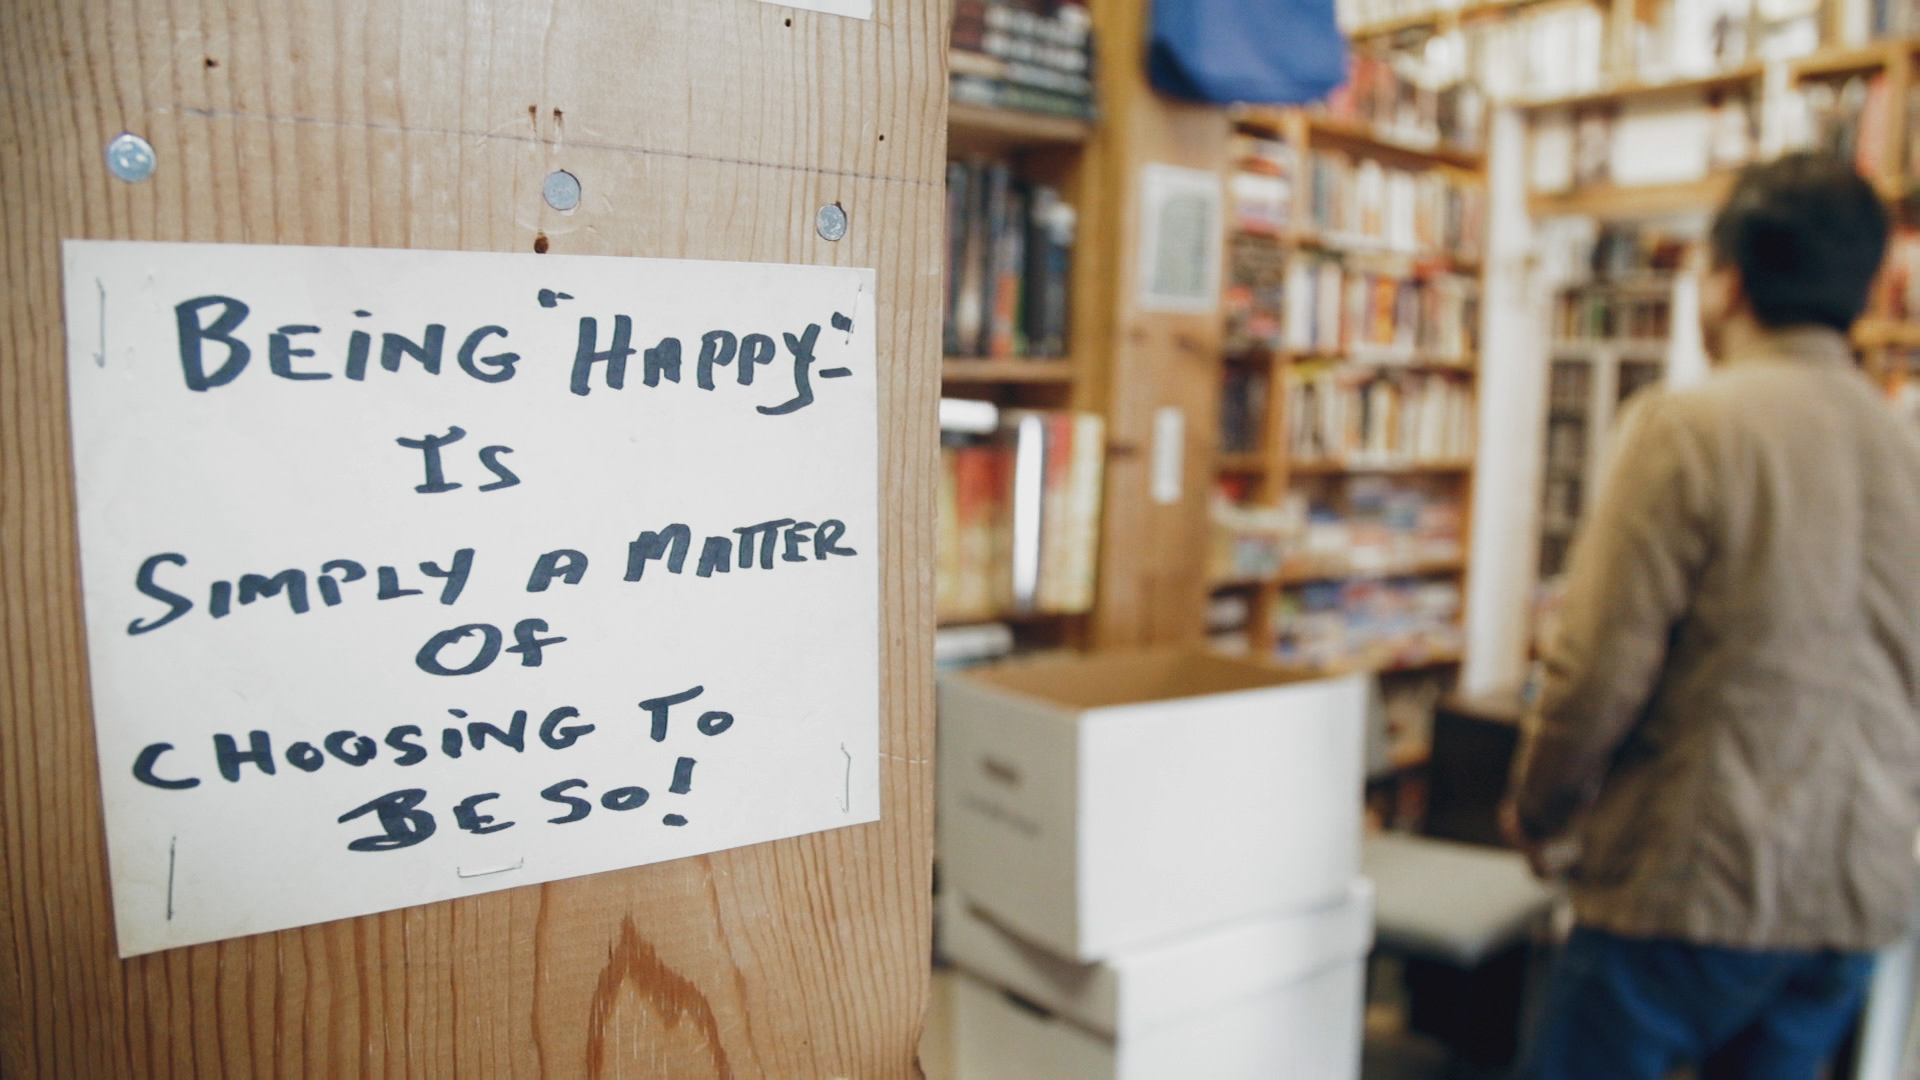 BEiNG "HAPPY"
IS
SIMPLY A MATTER
OF
CHOOSiNG TO
BE SO!